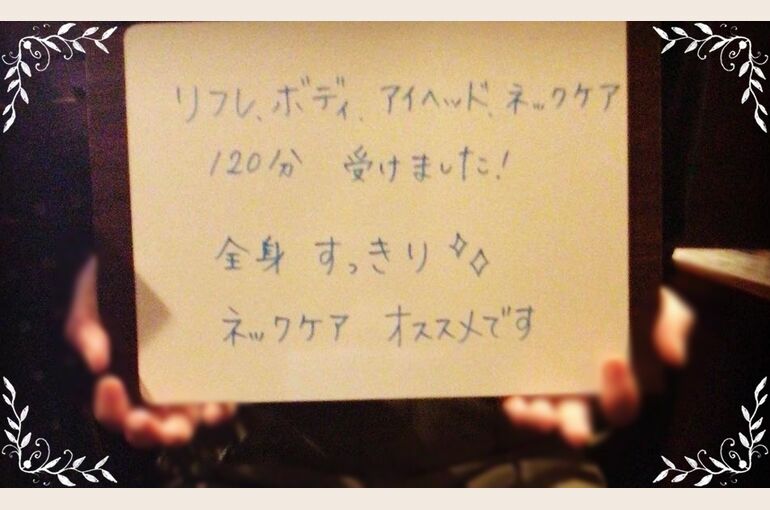 リフレ、ボディ、アイヘッド、ネックケア
120分 受けました!
全身 すっきり
ネックケア オススメです